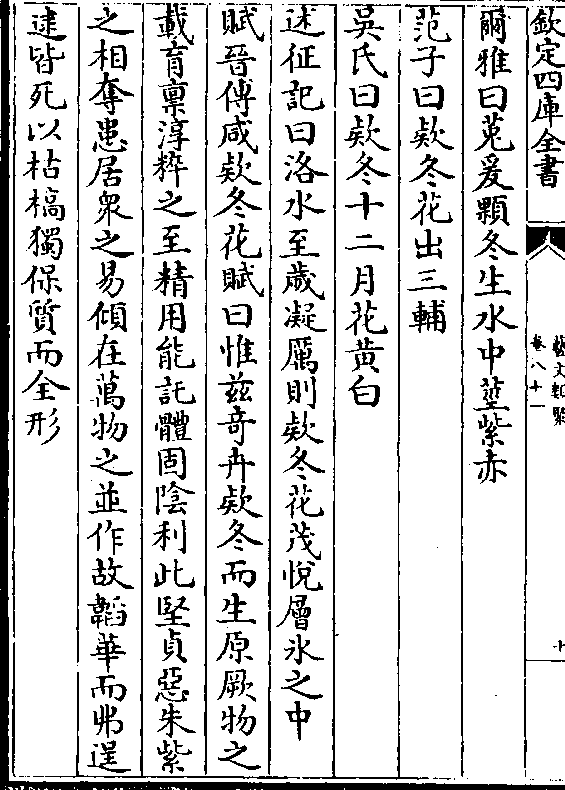 欽定四庫全書
藝文類聚
卷八十一
十
爾雅曰菟爰顆冬生水中莖紫赤
范子曰欵冬花出三輔
吳氏曰欵冬十二月花黄白
述征記曰洛水至歲凝厲則欵冬花茂悅層氷之中
賦晉傅咸欵冬花賦曰惟兹竒卉欵冬而生原厥物之
載育禀淳粹之至精用能託體固陰利此堅貞惡朱紫
之相奪患居衆之易傾在萬物之並作故韜華而弗逞
逮皆死以枯槁獨保質而全形